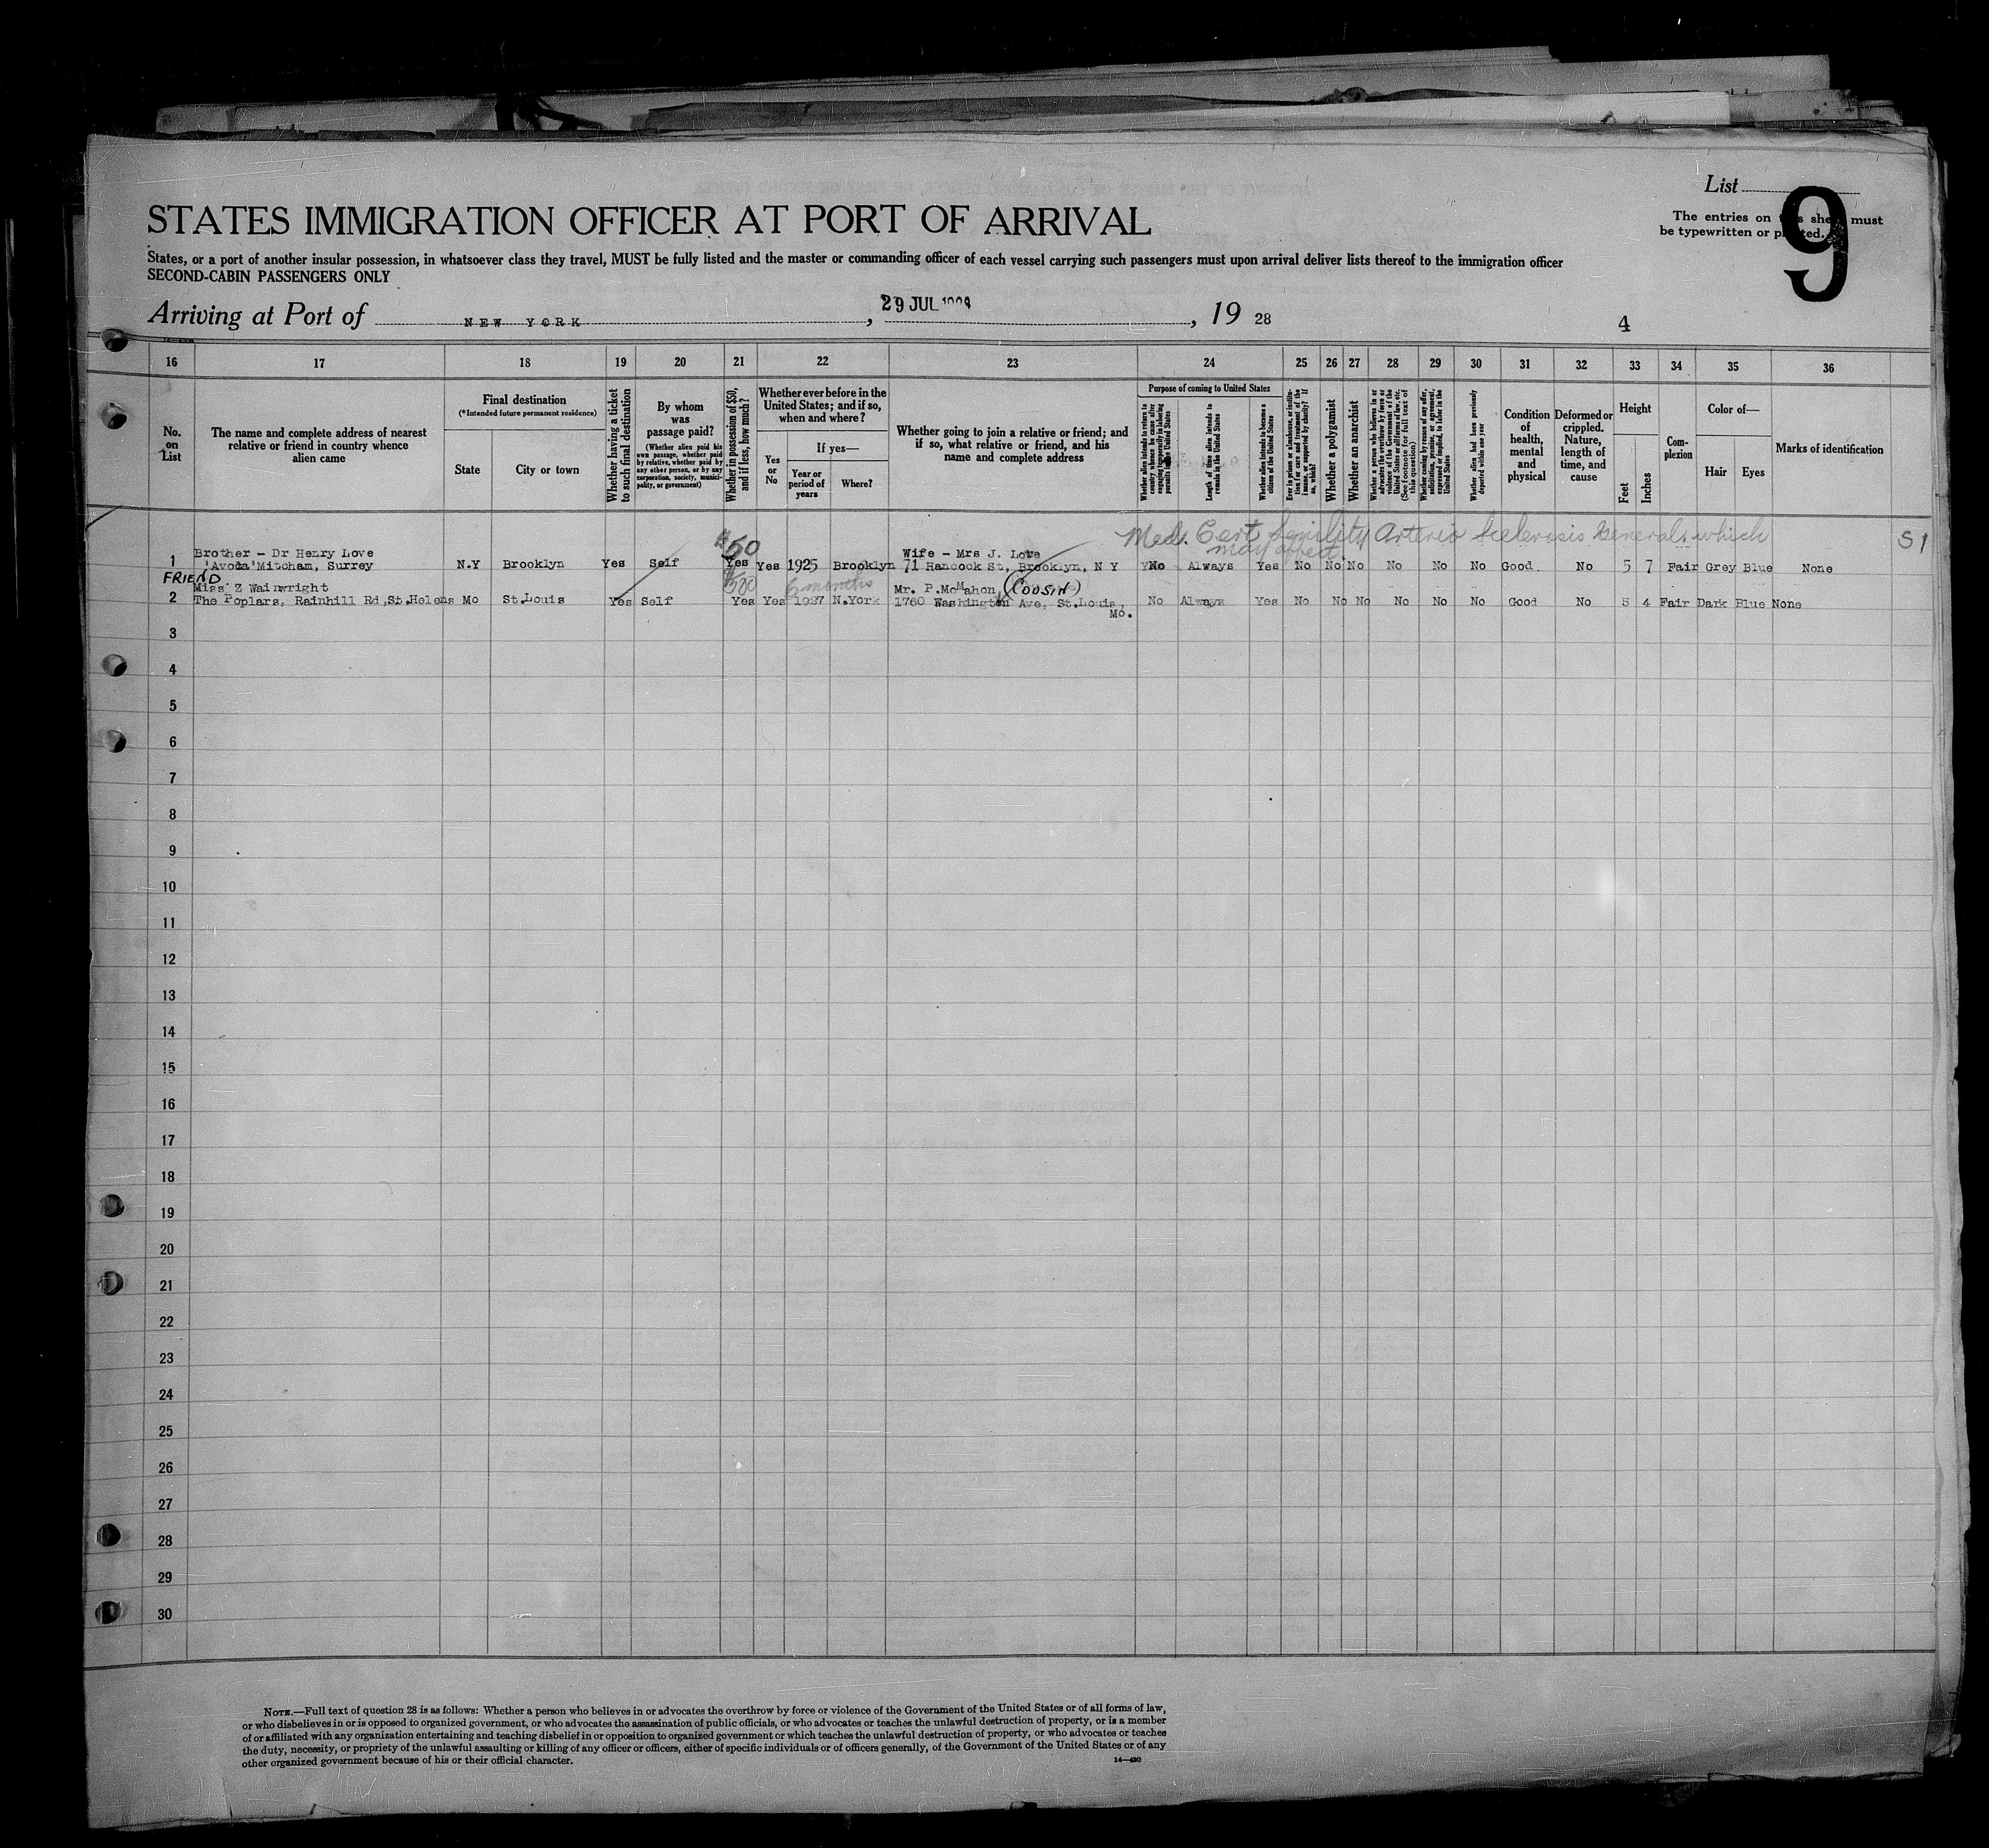 List
9
The entries on this sheet must
be typewritten or printed.
STATES IMMIGRATION OFFICER AT PORT OF ARRIVAL
States, or a port of another insular possession, in whatsoever class they travel, MUST be fully listed and the master or commanding officer of each vessel carrying such passengers must upon arrival deliver lists thereof to the immigration officer
SECOND-CABIN PASSENGERS ONLY
Arriving at Port of NEW YORK, 29 JUL, 19 28
4
16 17 18 19 20 21 22 23 24 25 26 27 28 29 30 31 32 33 34 35 36
No. on List
The name and complete address of nearest relative or friend in country whence alien came
Final destination
(*Intended future permanent residence)
State
City or town
Whether having a ticket to such final destination
By whom was passage paid?
(Whether alien paid his own passage, whether paid by relative, whether paid by any other person, or by any corporation, society, municipality, or government)
Whether in possession of $50, and if less, how much?
Whether ever before in the United States; and if so, when and where?
Yes or No
If yes—
Year or period of years
Where?
Whether going to join a relative or friend; and if so, what relative or friend, and his name and complete address
Purpose of coming to United States
Whether alien intends to return to country whence he came after engaging temporarily in laboring pursuits in the United States
Length of time alien intends to remain in the United States
Whether alien intends to become a citizen of the United States
Ever in prison or almshouse, or institution for care and treatment of the insane, or supported by charity? If so, which?
Whether a polygamist
Whether an anarchist
Whether a person who believes in or advocates the overthrow by force or violence of the Government of the United States or all forms of law, etc. (See footnote for full text of this question)
Whether coming by reason of any offer, solicitation, promise, or agreement, expressed or implied, to labor in the United States
Whether alien had been previously deported within one year
Condition of health, mental and physical
Deformed or crippled. Nature, length of time, and cause
Height
Feet
Inches
Complexion
Color of—
Hair
Eyes
Marks of identification
Med. Cert Senility Arterio Sclerosis General, which
may affect
S I
$50
1 Brother - Dr Henry Love
'Avoca' Mitcham, Surrey N.Y Brooklyn Yes Self Yes Yes 1925 Brooklyn Wife - Mrs J. Love
71 Hancock St, Brooklyn, N Y No Always Yes No No No No No No Good No 5 7 Fair Grey Blue None
FRIEND
$50 6 months
2 Miss Z Wainwright
The Poplars, Rainhill Rd, St.Helens Mo St.Louis Yes Self Yes Yes 1927 N.York Mr. P.McMahon, (COUSIN)
1760 Washington Ave, St.Louis, Mo. No Always Yes No No No No No No Good No 5 4 Fair Dark Blue None
3
4
5
6
7
8
9
10
11
12
13
14
15
16
17
18
19
20
21
22
23
24
25
26
27
28
29
30
NOTE.—Full text of question 28 is as follows: Whether a person who believes in or advocates the overthrow by force or violence of the Government of the United States or of all forms of law,
or who disbelieves in or is opposed to organized government, or who advocates the assassination of public officials, or who advocates or teaches the unlawful destruction of property, or is a member
of or affiliated with any organization entertaining and teaching disbelief in or opposition to organized government or which teaches the unlawful destruction of property, or who advocates or teaches
the duty, necessity, or propriety of the unlawful assaulting or killing of any officer or officers, either of specific individuals or of officers generally, of the Government of the United States or of any
other organized government because of his or their official character.
14—430